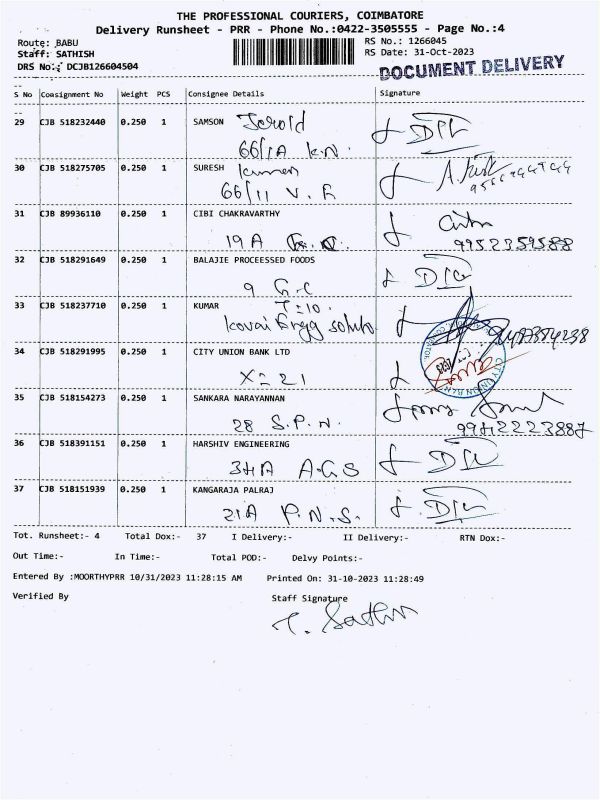 THE PROFESSIONAL COURIERS, COIMBATORE
Delivery Runsheet - PRR - Phone No.:0422-3505555 - Page No.:4
Route: BABU
RS No.: 1266045
Staff: SATHISH
RS Date: 31-Oct-2023
DRS No.: DCJB126604504
DOCUMENT DELIVERY
S No Consignment No Weight PCS Consignee Details Signature
29 CJB 518232440 0.250 1 SAMSON Jerold
66/1A K.N.
30 CJB 518275705 0.250 1 SURESH Kumar
66/11 V.R
31 CJB 89936110 0.250 1 CIBI CHAKRAVARTHY
19A
9952359588
32 CJB 518291649 0.250 1 BALAJIE PROCEESSED FOODS
9 G.C
33 CJB 518237710 0.250 1 KUMAR T=10.
Kovai Engg
34 CJB 518291995 0.250 1 CITY UNION BANK LTD
X=21
CITY UNION BANK
35 CJB 518154273 0.250 1 SANKARA NARAYANNAN
28 S.P.N.
36 CJB 518391151 0.250 1 HARSHIV ENGINEERING
34A A.G.S
37 CJB 518151939 0.250 1 KANGARAJA PALRAJ
21A P.N.S.
Tot. Runsheet:- 4 Total Dox:- 37 I Delivery:- II Delivery:- RTN Dox:-
Out Time:- In Time:- Total POD:- Delvy Points:-
Entered By :MOORTHYPRR 10/31/2023 11:28:15 AM Printed On: 31-10-2023 11:28:49
Verified By Staff Signature